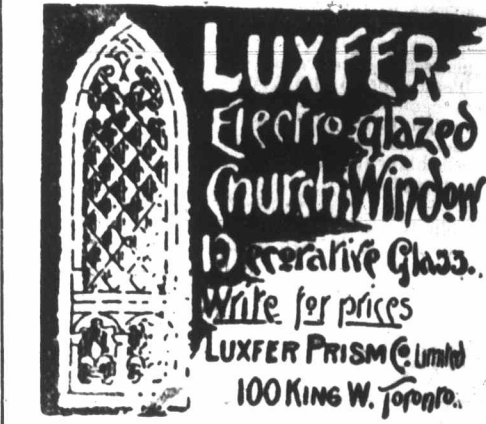 LUXFER
Electro-glazed
Church Window
Decorative Glass..
Write for prices
LUXFER PRISM Co. Limited
100 KING W. Toronto..